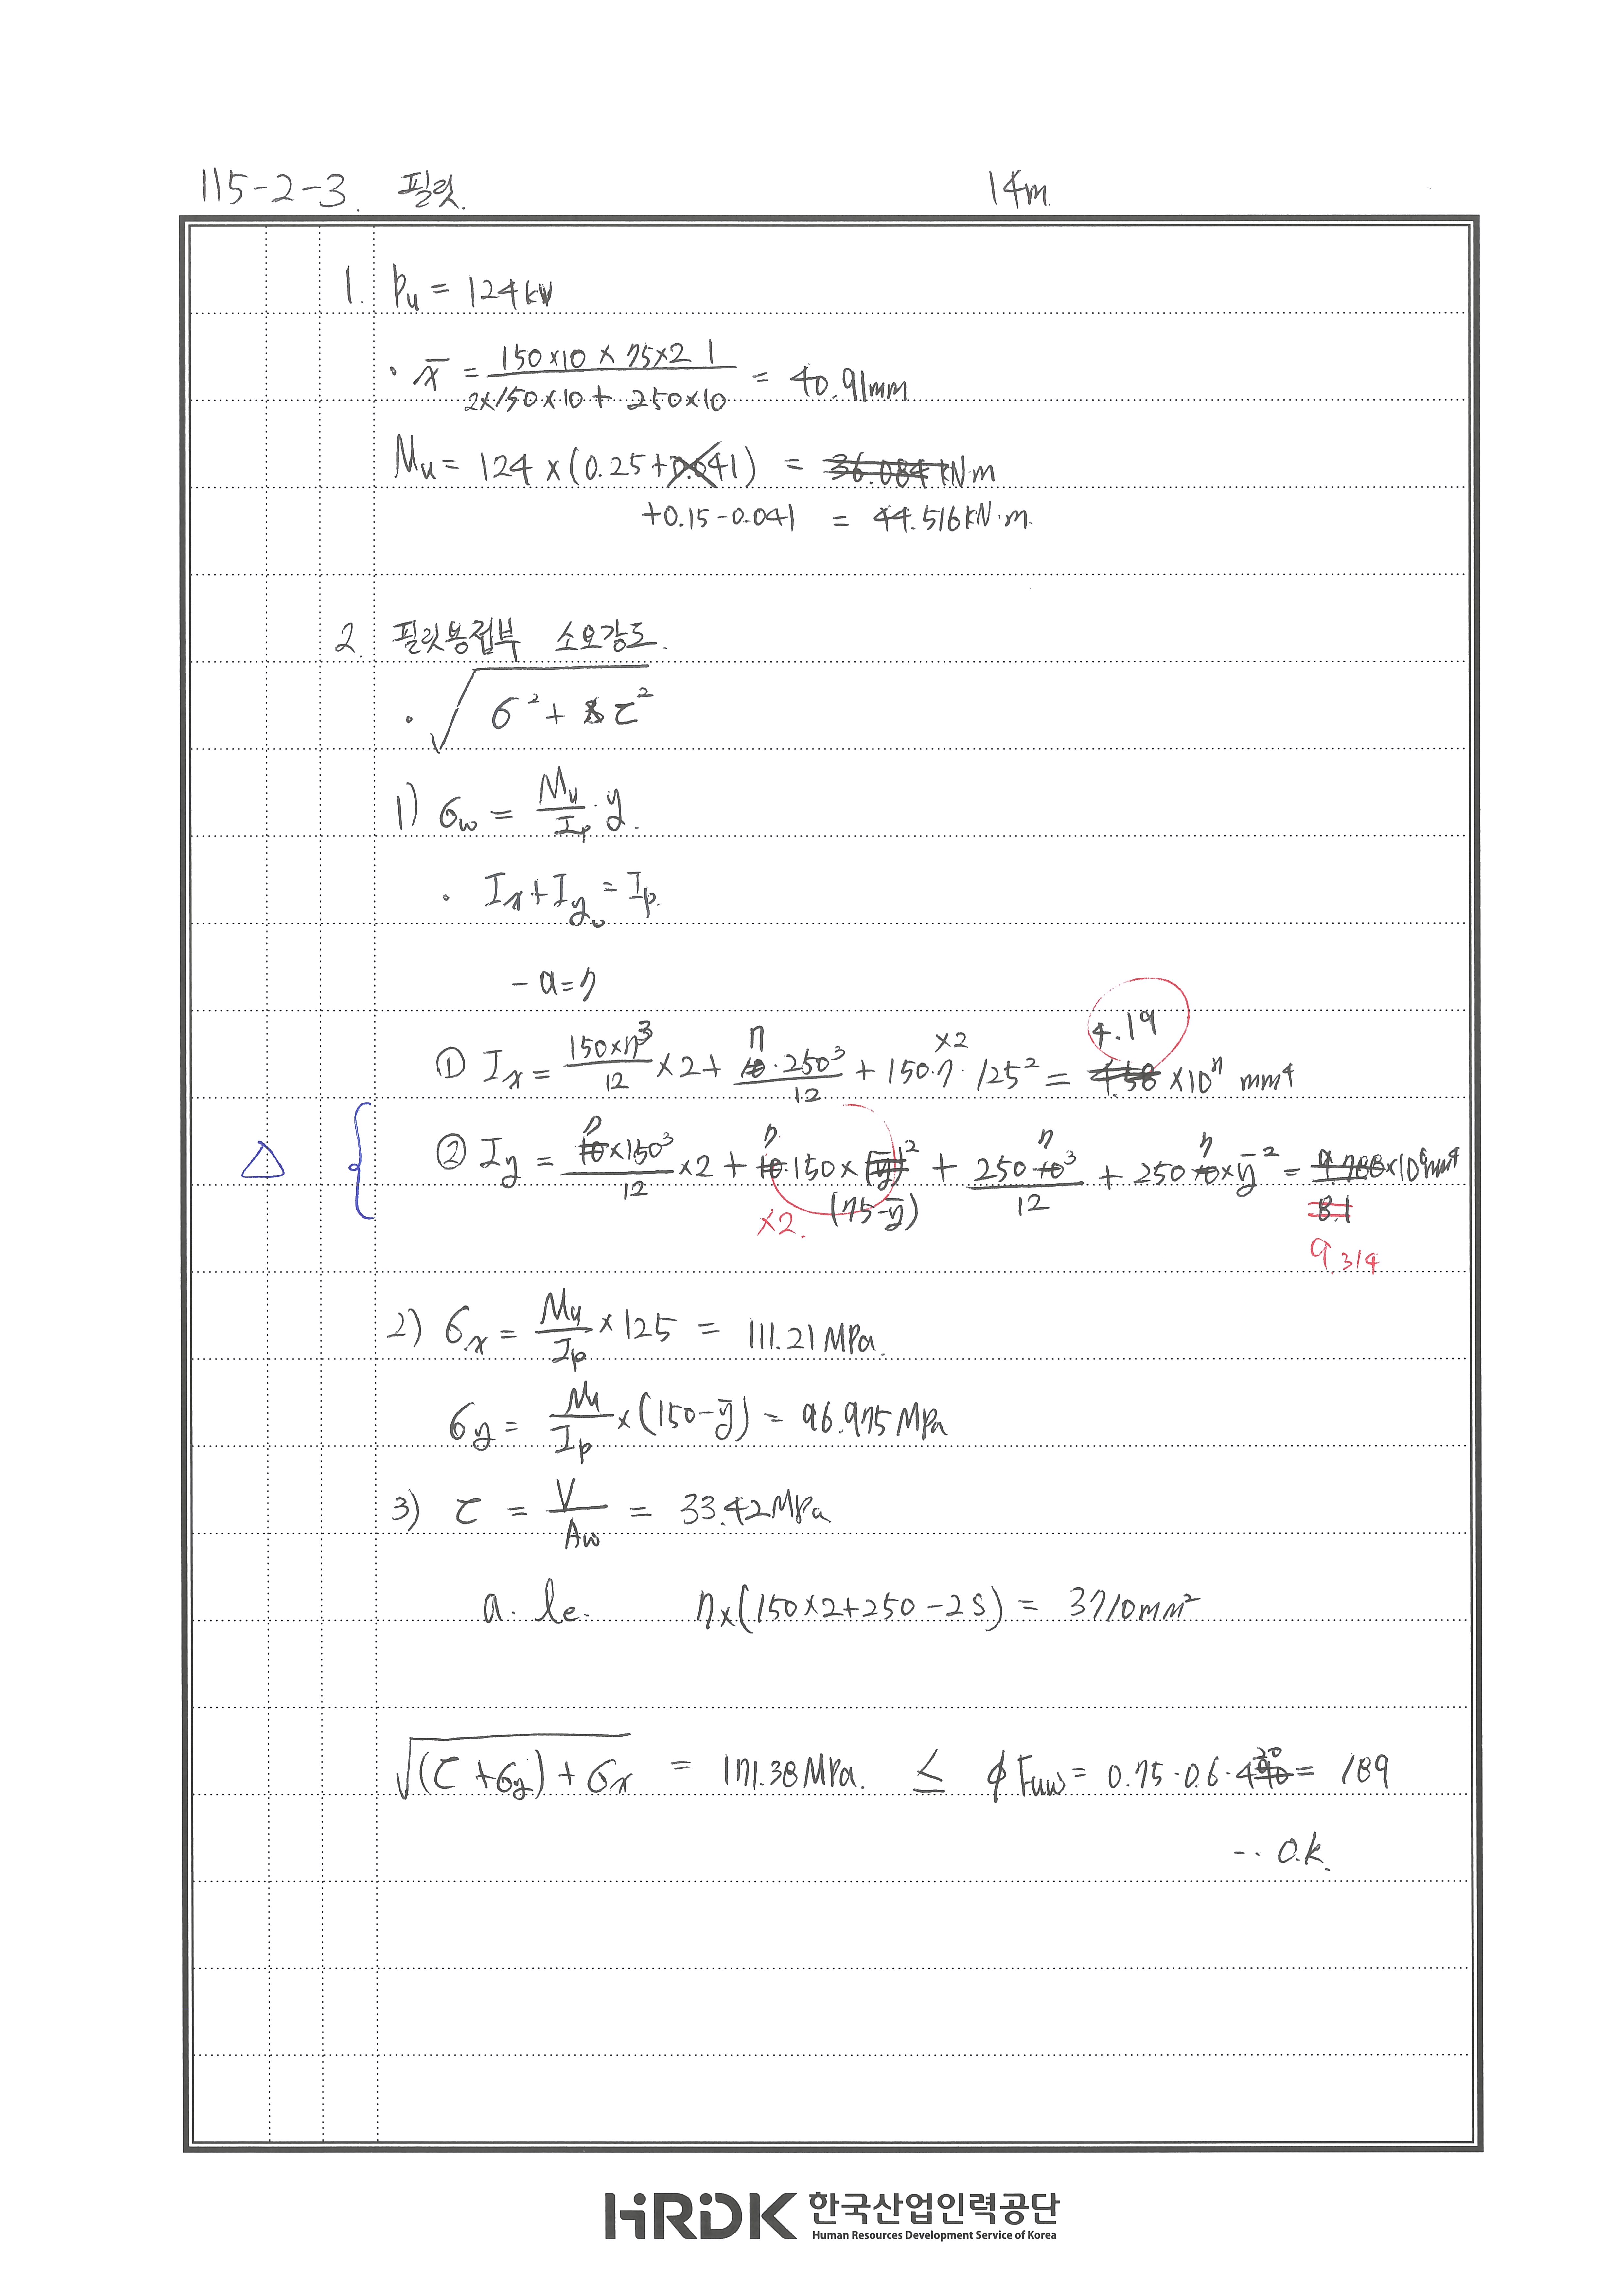 115-2-3. 필릿. 14m
1. Pu = 124kN
· x̄ = (150×10 × 75×2) / (2×150×10 + 250×10) = 40.91mm
Mu = 124 × (0.25+0.041) = 36.084 kN m
+0.15-0.041 = 44.516kN·m.
2. 필릿용접부 소요강도.
· √(σ² + τ²)
1) σw = Mu/Ip · y.
· Ix+Iy = Ip.
- a=7
① Ix = 150×7³/12 ×2 + 7·250³/12 + 150·7·125² ×2 = 4.19 ×10⁷ mm⁴
△ ② Iy = 7×150³/12 ×2 + 7·150×(75-ȳ)² ×2. + 250·7³/12 + 250·7×ȳ² = 8.1 ×10⁶mm⁴
9.314
2) σx = Mu/Ip ×125 = 111.21 MPa.
σy = Mu/Ip ×(150-ȳ) = 96.975 MPa
3) τ = V/Aw = 33.42MPa
a·le. 7×(150×2+250-2S) = 3710mm²
√((τ+σy)+σx) = 171.38 MPa. ≤ φFuw = 0.75·0.6·420 = 189
-·· O.K.
HRDK 한국산업인력공단
Human Resources Development Service of Korea